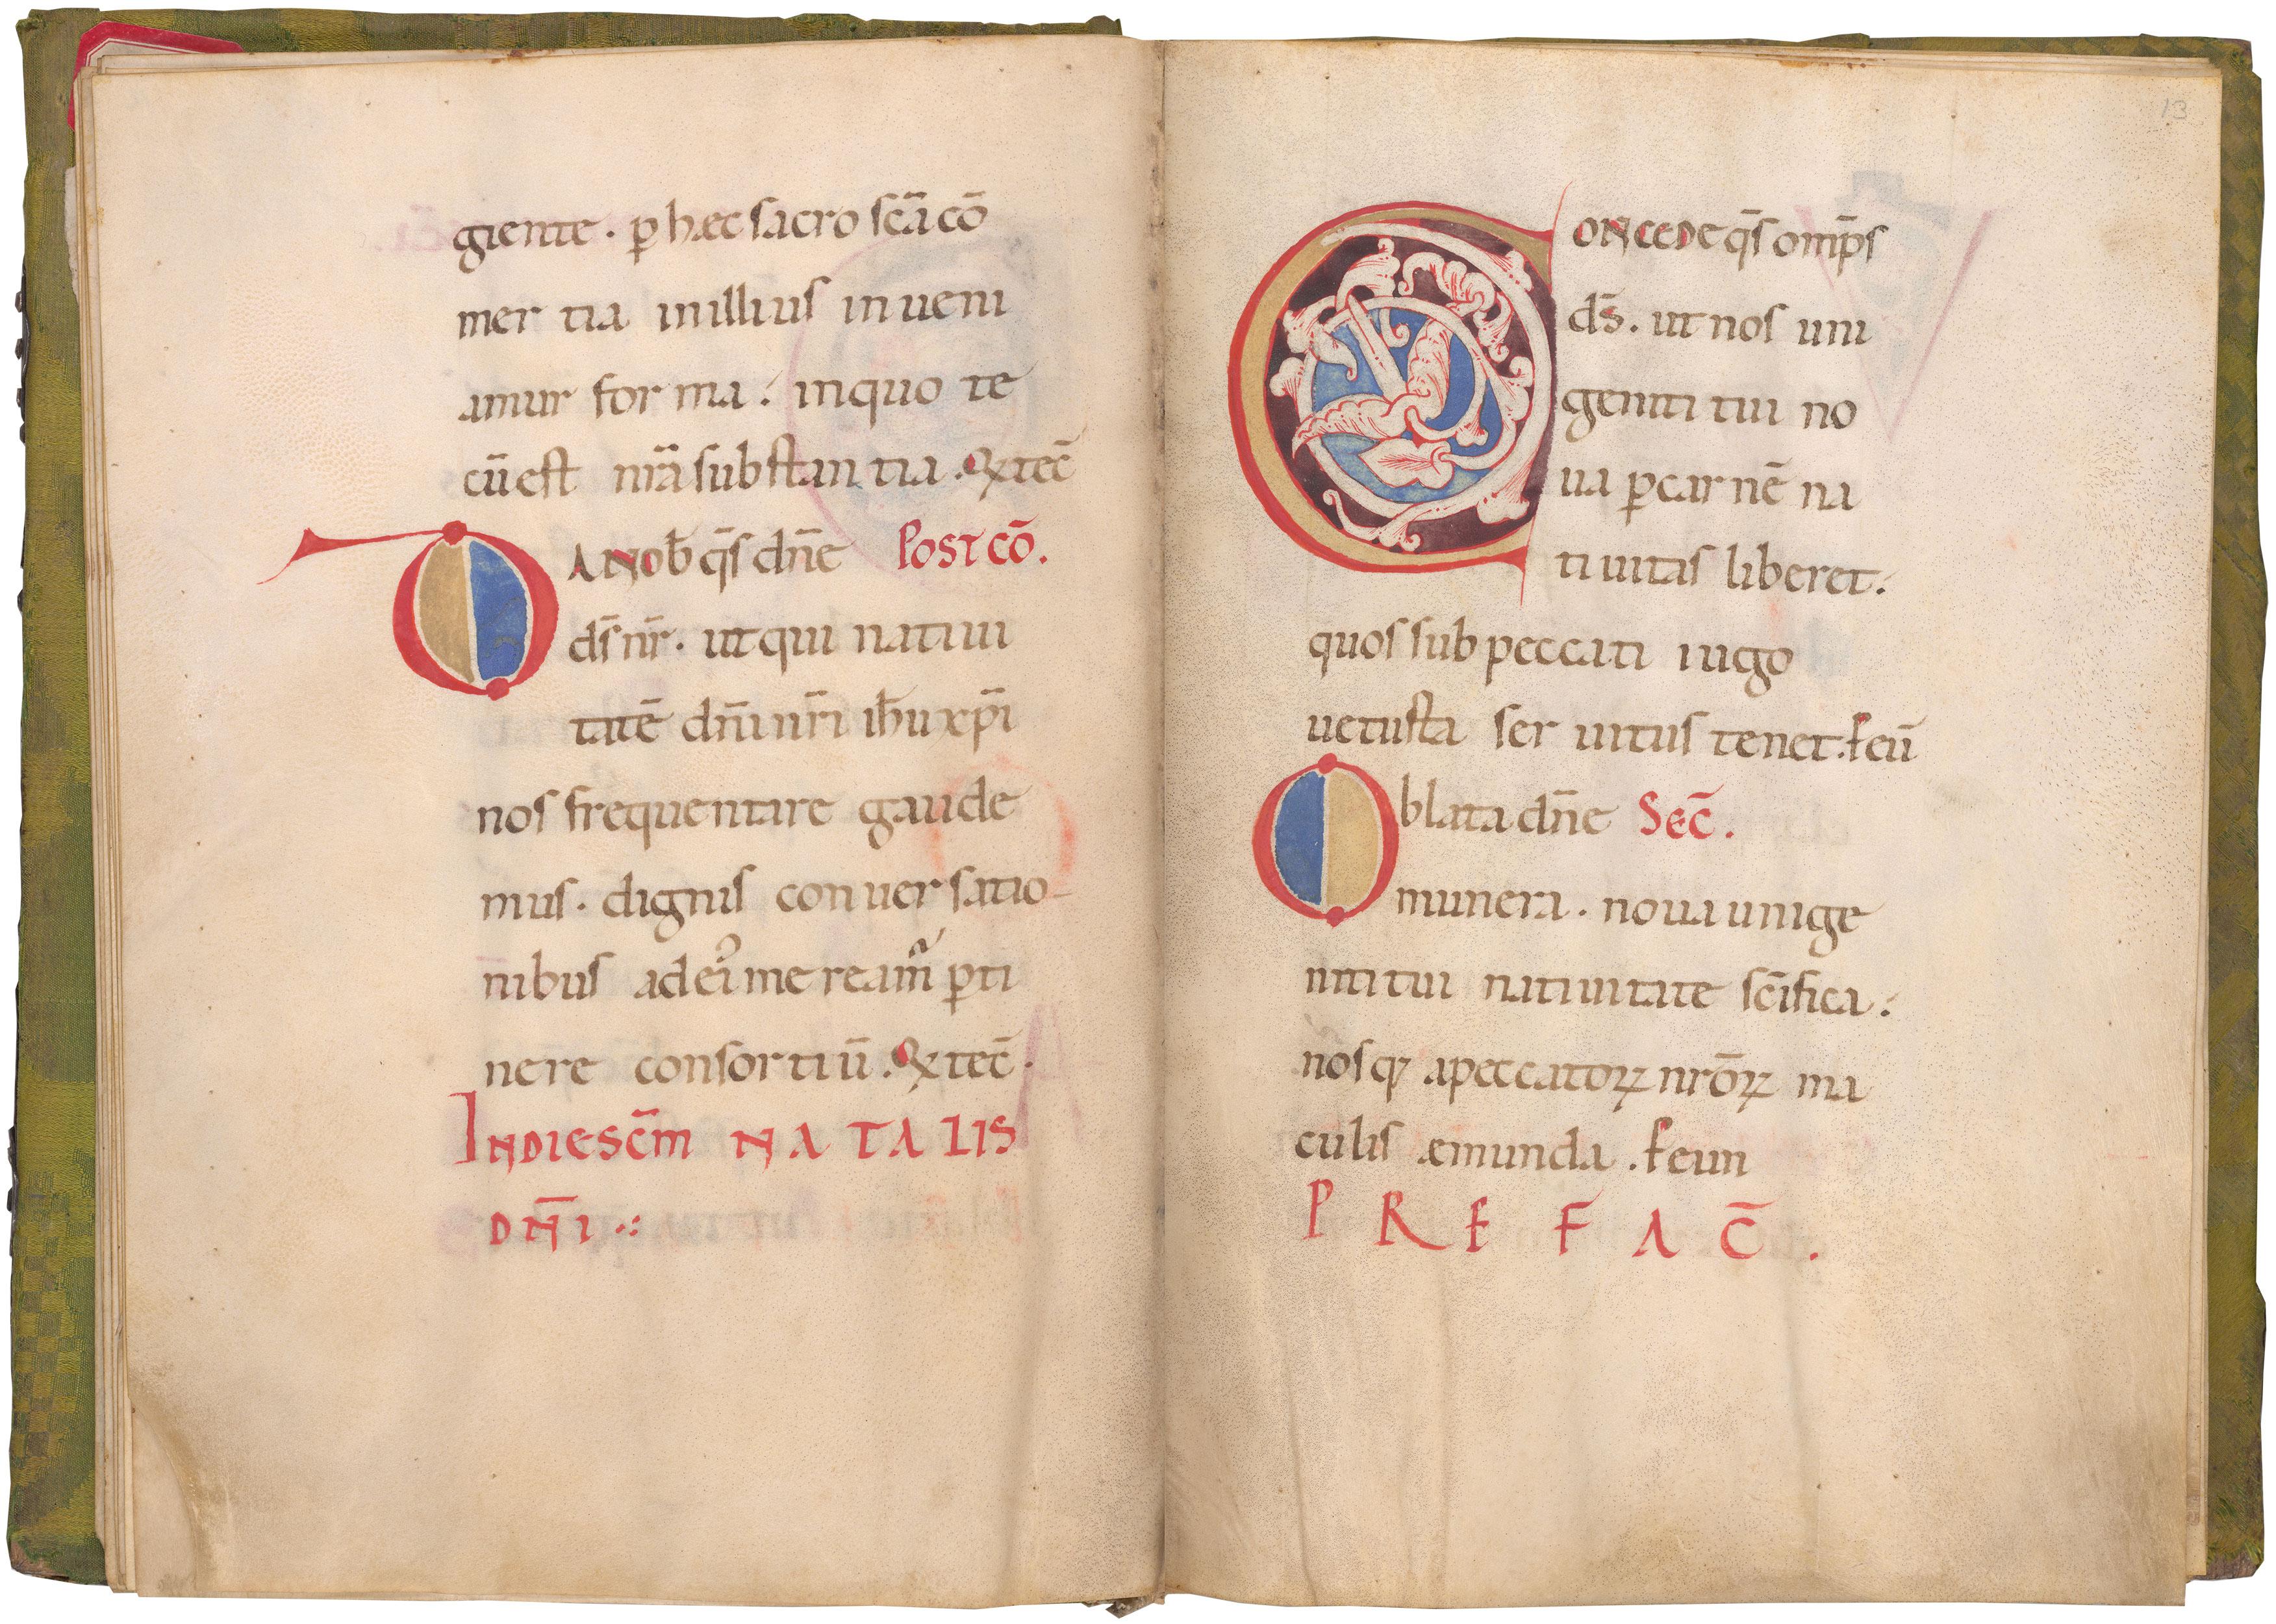 giente. p hæc sacro sc̄a cō
mer tia in illius in ueni
amur for ma: in quo te
cū est nr̄a substan tia. Qx tec̄
DA NOb̄ q̄s dn̄e Post cō.
ds̄ nr̄. ut qui natiui
tatē dn̄i nr̄i ih̄u xp̄i
nos frequentare gaude
mus. dignis con uer satio-
nibus ad ei' me ream̃ pti
nere consor tiū. Qx tec̄.
IN DIE SC̄M NA TA LIS
DN̄I .:
13
CONCEDE q̄s omp̄s
ds̄. ut nos uni
geniti tui no
ua p car nē na
ti uitas liberet:
quos sub peccati iugo
uetusta ser uitus tenet. ꝑ eū
Oblata dn̄e Sec̄.
munera. noua unige
niti tui natiuitate sc̄ifica:
nosqꝫ a peccatoꝝ nr̄oꝝ ma
culis æmunda. ꝑ eun
P R E F A C̄ .